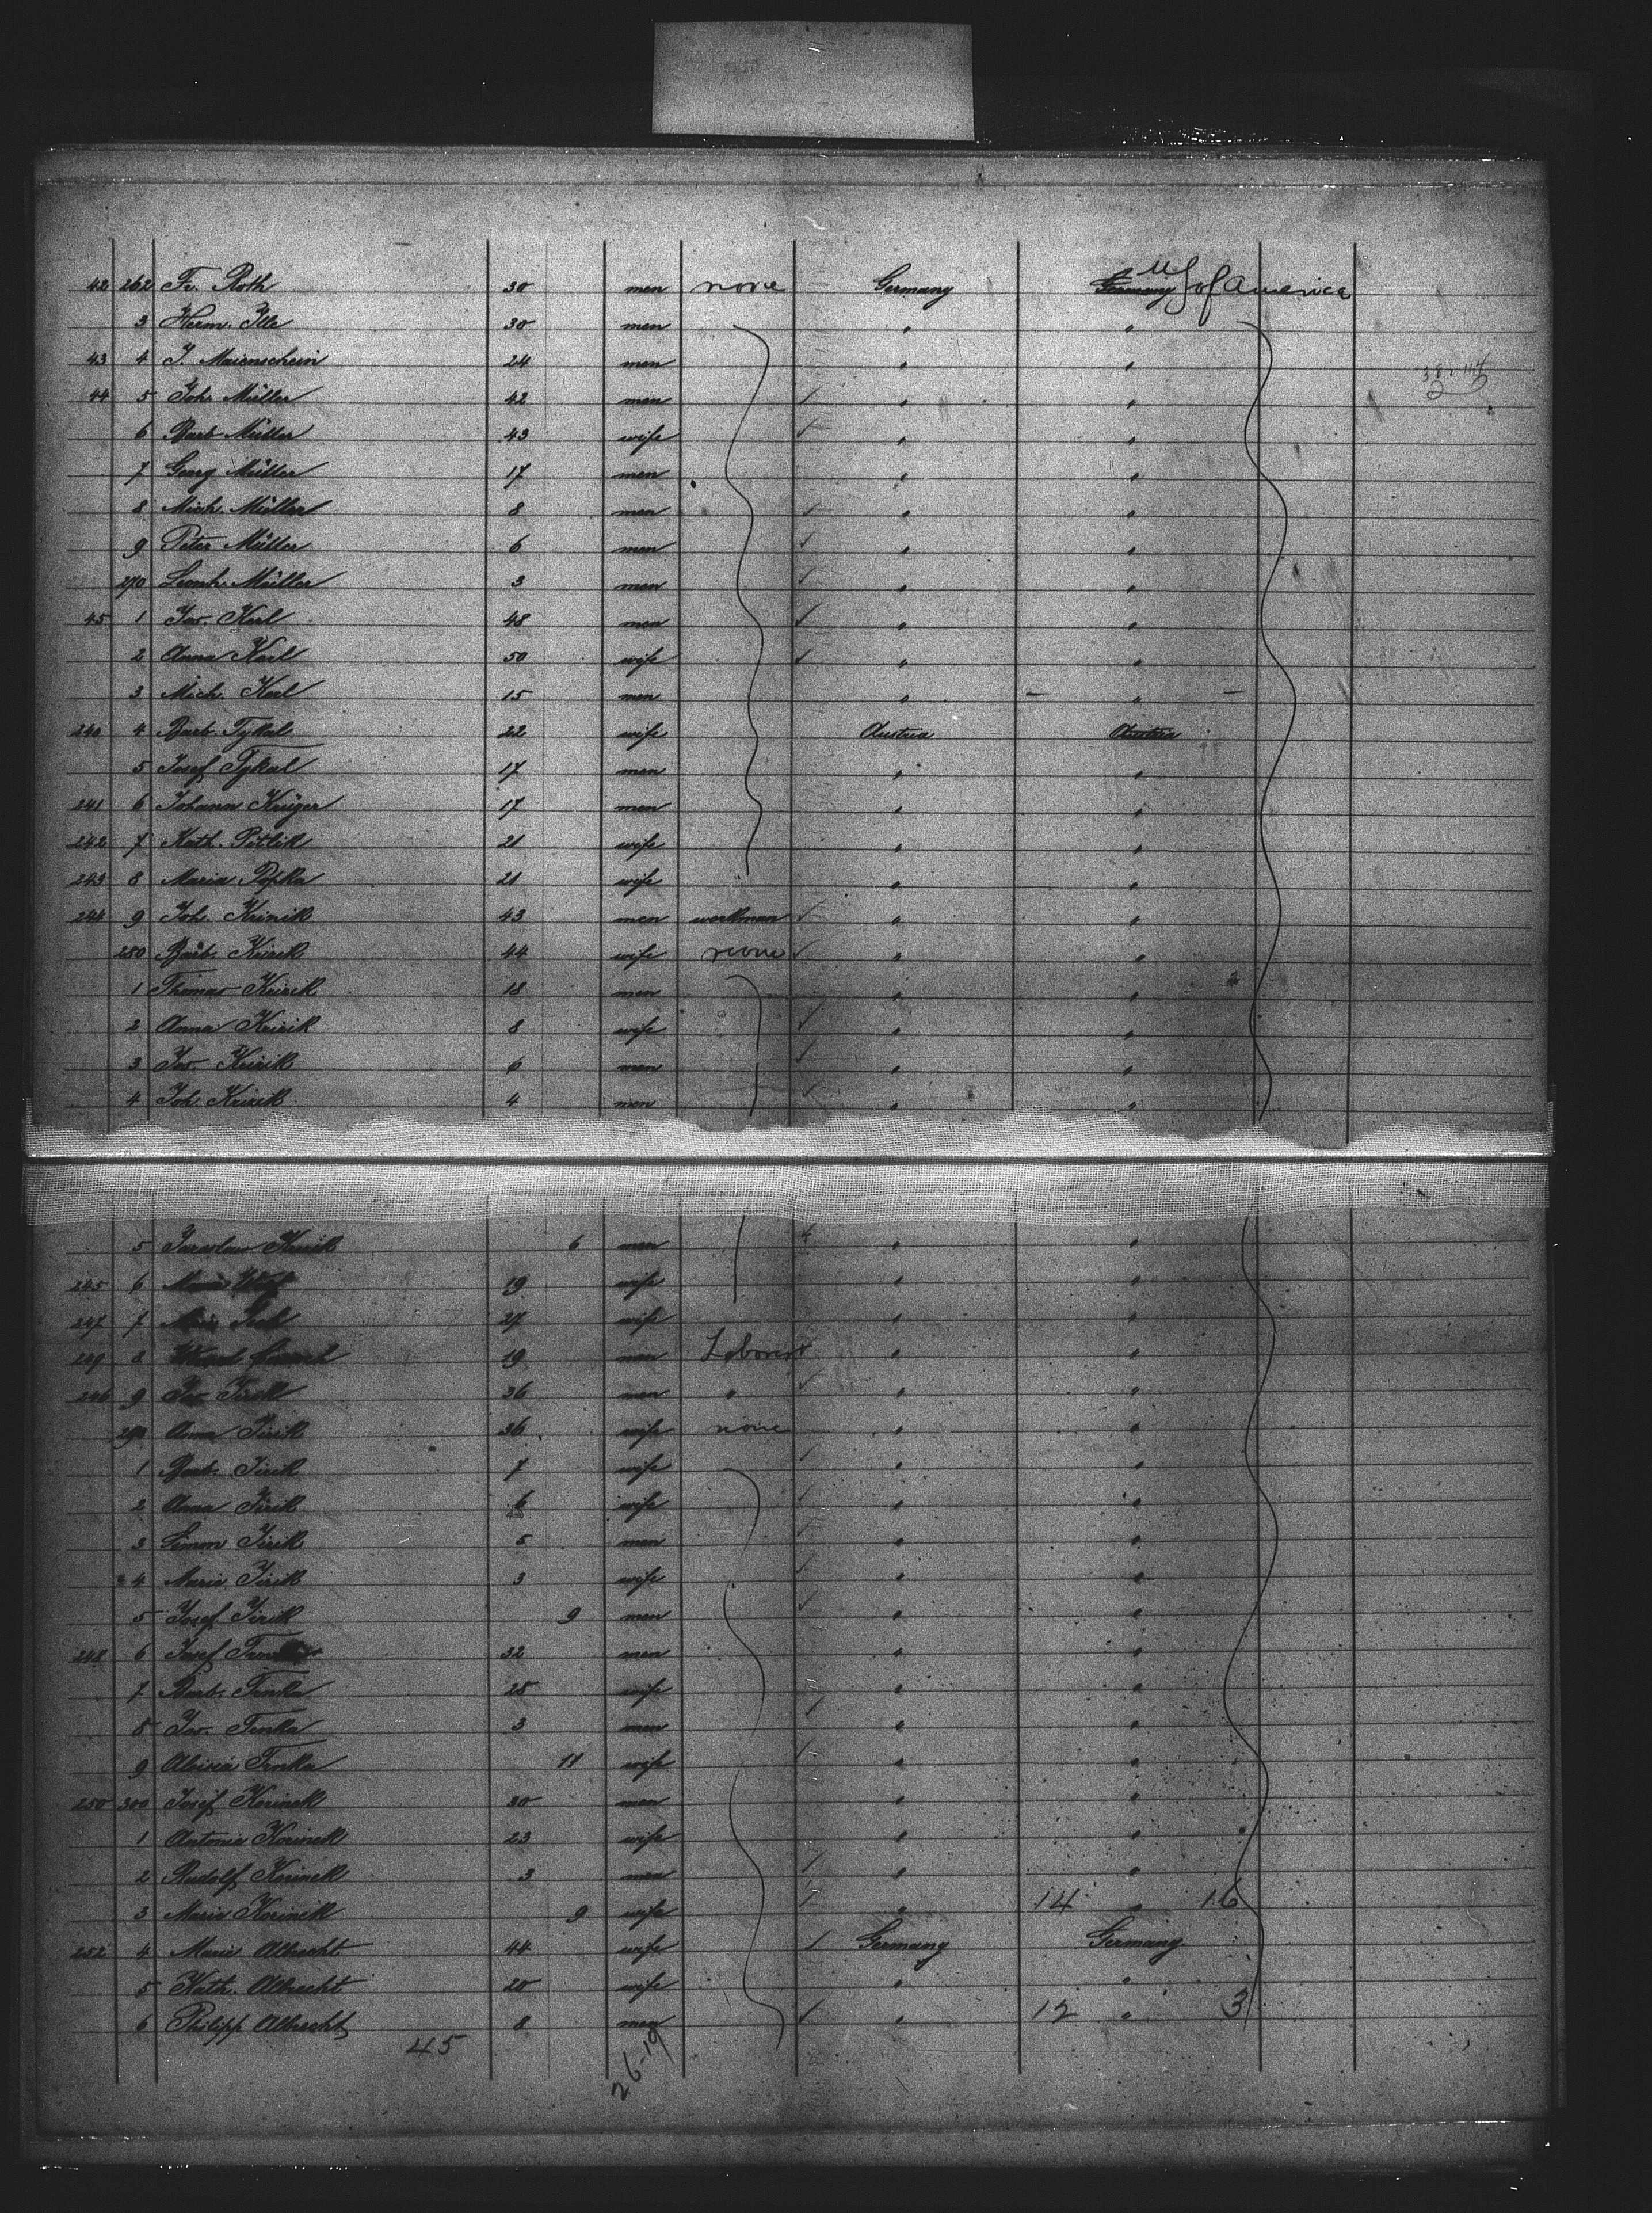 42 262 Fr. Roth 30 men none Germany Germany US of America
3 Herm. Ille 30 men " "
43 4 J. Maienschein 24 men " "
44 5 Joh. Müller 42 men " "
6 Barb Müller 43 wife " "
7 Georg Müller 17 men " "
8 Mich. Müller 8 men " "
9 Peter Müller 6 men " "
270 Leonh. Müller 3 men " "
45 1 Jos. Karl 48 men " "
2 Anna Karl 50 wife " "
3 Mich. Karl 15 men " — " —
240 4 Barb. Tykal 22 wife Austria Austria
5 Josef Tykal 17 men " "
241 6 Johann Krüger 17 men " "
242 7 Kath. Pitlik 21 wife " "
243 8 Maria Popka 21 wife " "
244 9 Joh. Krinik 43 men workman " "
280 Barb. Krizek 44 wife none " "
1 Thomas Krizek 18 men " "
2 Anna Krizik 8 wife " "
3 Jos. Krizik 6 men " "
4 Joh. Krizek 4 men " "
5 Jaroslaw 6 men " "
245 6 19 wife " "
247 7 27 wife " "
249 8 19 men Laborer " "
246 9 Jos. Jirik 36 men " " "
290 Anna Jirik 36 wife none " "
1 Barb. Jirik 7 wife " "
2 Anna Jirik 6 wife " "
3 Simon Jirik 5 men " "
4 Marie Jirik 3 wife " "
5 Josef Jirik 9 men " "
248 6 Josef 32 men " "
7 Barb. Trnka 28 wife " "
8 Jos. Trnka 3 men " "
9 Aloisia Trnka 11 wife " "
250 300 Josef Korinek 30 men " "
1 Antonia Korinek 23 wife " "
2 Rudolf Korinek 3 men " "
3 Maria Korinek 9 wife " 14 " 16
252 4 Marie Albrecht 44 wife Germany Germany
5 Kath. Albrecht 20 wife " "
6 Philipp Albrecht 8 men " 12 " 3
45
26-19